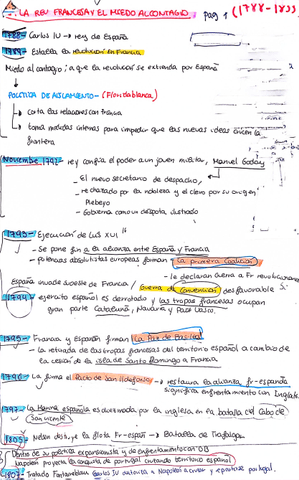 LA REV FRANCESA Y EL MIEDO AL CONTAGIO Pag 1 (1788-18
1788- Carlos IV → rey de España
1789- Estalla la revolución en Francia
Miedo al contagio; a que la revolución se extienda por España
POLÍTICA DE AISLAMIENTO- (Floridablanca)
→ corta las relaciones con francia
→ toma medidas internas para impedir que las nuevas ideas crucen la
frontera
Noviembre 1792- rey confia el poder a un joven militar, Manuel Godoy
- El nuevo secretario de despacho,
- rechazado por la nobleza y el clero por su origen
Plebeyo
- Gobierna como un despota ilustrado
1793- Ejecución de Luis XVI
- Se pone fin a la alianza entre España y Francia
- potencias absolutistas europeas firman la primera Coalición
- le declaran Guerra a Fr revolucionaria
España invade sudeste de Francia / Guerra de Convención desfavorable
1794- ejercito español es derrotado y las tropas francesas ocupan
gran parte Cataluña, Navarra y País Vasco.
1795- Francia y España firman La Paz de Basilea
- la retirada de las tropas francesas del territorio español a cambio de
la cesión de la isla de Santo Domingo a Francia
1796- La firma el Pacto de San Ildefonso → restaura la alianza fr-española
significa enfrentamiento con Inglate
1797- La Marina española es derrotada por la inglesa en la batalla del Cabo de
San Vicente
1805- Nelson dest. la flota Fr-españ → Batalla de Trafalgar
Dentro de su política expansionista y de enfrentamiento con GB
Napoleón proyecta la conquista de portugal cruzando territorio español
1807- Tratado Fontainebleau Carlos IV autoriza a Napoleón a cruzar y repartirse portugal.